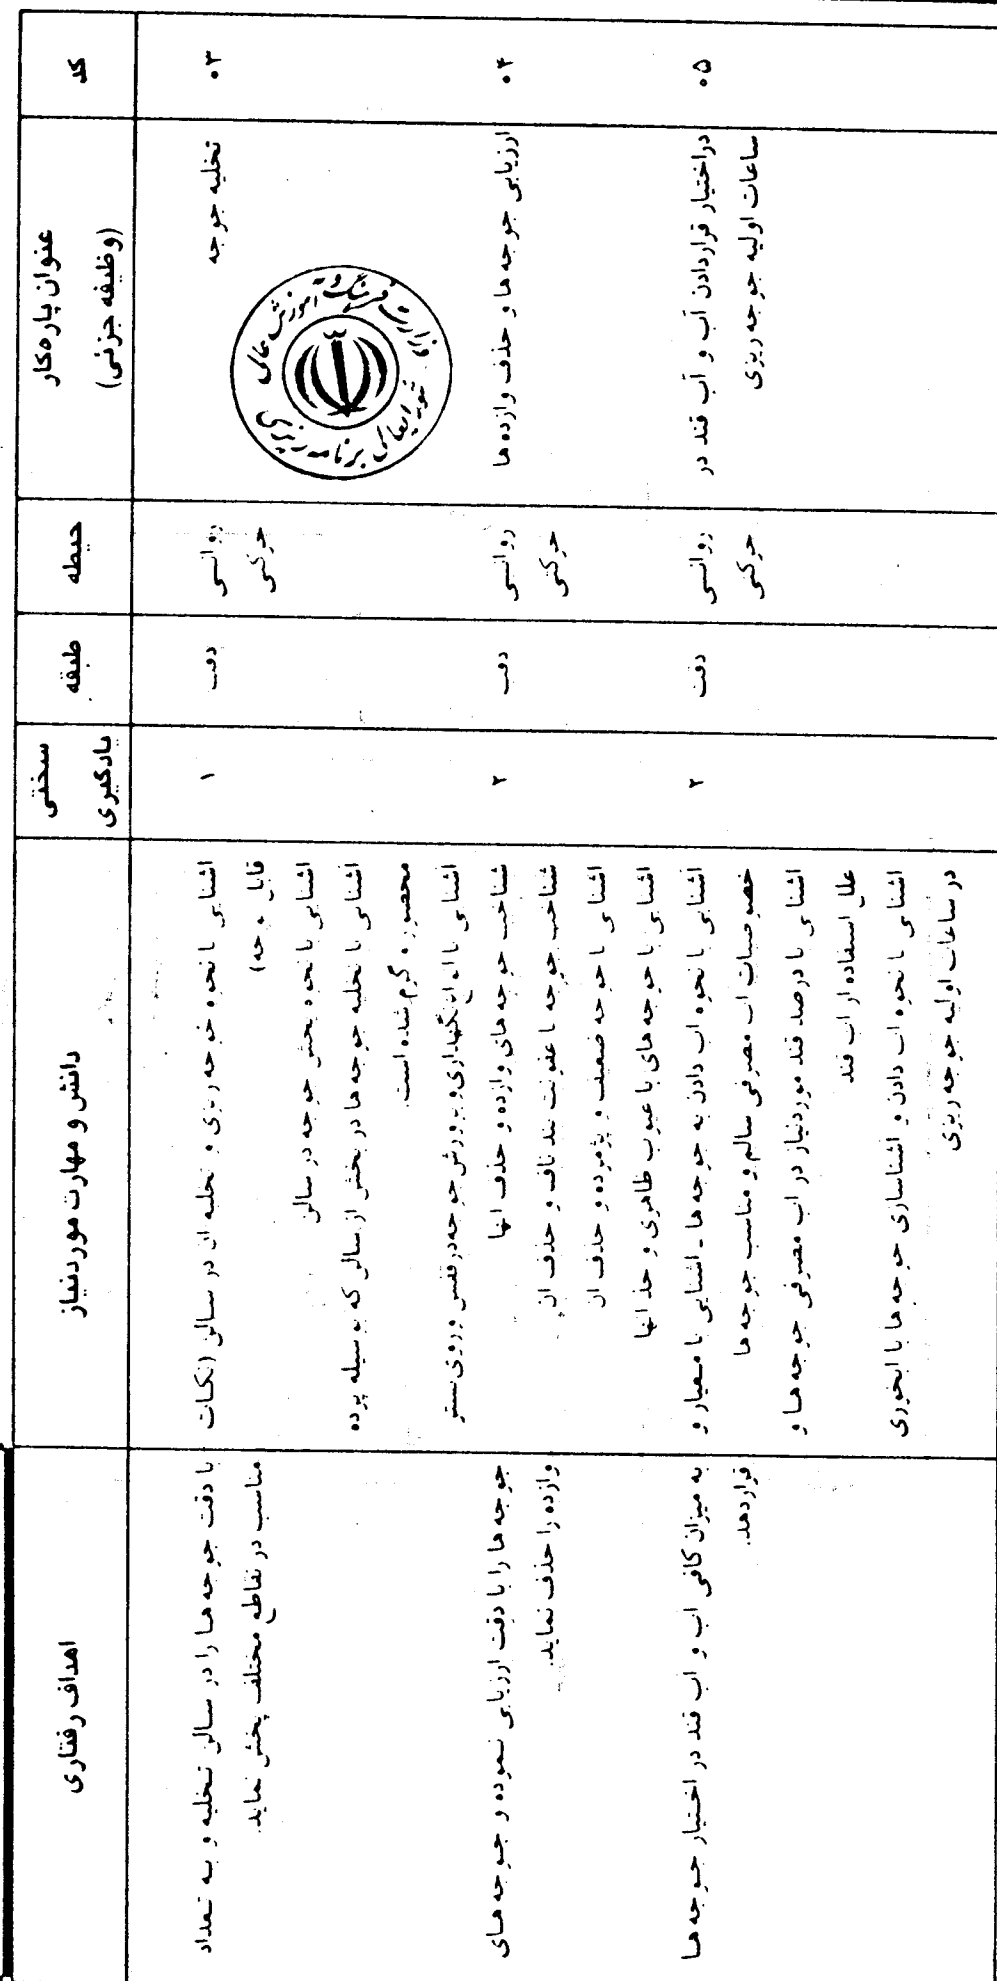 کد
عنوان پاره‌کار
(وظیفه جزئی)
حیطه
طبقه
سختی
یادگیری
دانش و مهارت موردنیاز
اهداف رفتاری
۰۳
تخلیه جوجه
روانی
حرکتی
دقت
۱
اشنایی با نحوه جوجه ریزی و تخلیه ان در سالن (نکات
قابل توجه)
اشنایی با نحوه پخش جوجه در سالن
اشنایی با تخلیه جوجه ها در بخش از سالن که بوسیله پرده
محصور و گرم شده است.
اشنایی با انواع نگهداری و پرورش جوجه در قفس و روی بستر
با دقت جوجه ها را در سالن تخلیه و به تعداد
مناسب در نقاط مختلف پخش نماید.
۰۴
ارزیابی جوجه ها و حذف وازده ها
روانی
حرکتی
دقت
۲
شناخت جوجه های وازده و حذف انها
شناخت جوجه با عفونت بند ناف و حذف ان
اشنایی با جوجه ضعیف و پژمرده و حذف ان
اشنایی با جوجه های با عیوب ظاهری و حذ انها
جوجه ها را با دقت ارزیابی نموده و جوجه های
وازده را حذف نماید.
۰۵
دراختیار قراردادن آب و آب قند در
ساعات اولیه جوجه ریزی
روانی
حرکتی
دقت
۲
اشنایی با نحوه اب دادن به جوجه ها ـ اشنایی با معیار و
خصوصیات اب مصرفی سالم و مناسب جوجه ها
اشنایی با درصد قند موردنیاز در اب مصرفی جوجه ها و
علل استفاده از اب قند
اشنایی با نحوه اب دادن و اشناسازی جوجه ها با ابخوری
در ساعات اولیه جوجه ریزی
به میزان کافی اب و اب قند در اختیار جوجه ها
قراردهد.
وزارت فرهنگ و آموزش عالی
شورایعالی برنامه ریزی